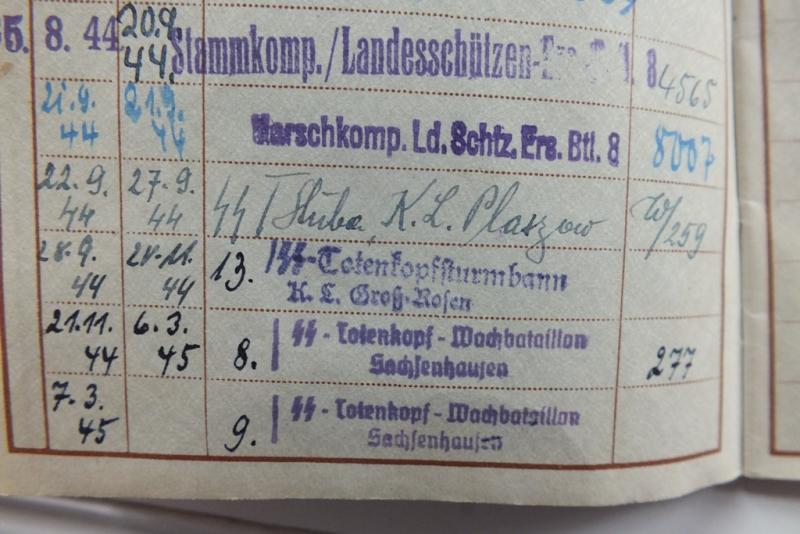 5. 8. 44 20.9. 44. Stammkomp./Landesschützen- 8 4565
21.9. 44 21.9. 44 Marschkomp. Ld. Schtz. Ers. Btl. 8 8007
22.9. 44 27.9. 44 SS T Stuba, K.L. Plaszow W/259
28.9. 44 44 13. SS-Totenkopfsturmbann
K. L. Groß-Rosen
21.11. 44 6.3. 45 8. SS-Totenkopf-Wachbataillon
Sachsenhausen 277
7.3. 45 9. SS-Totenkopf-Wachbataillon
Sachsenhausen